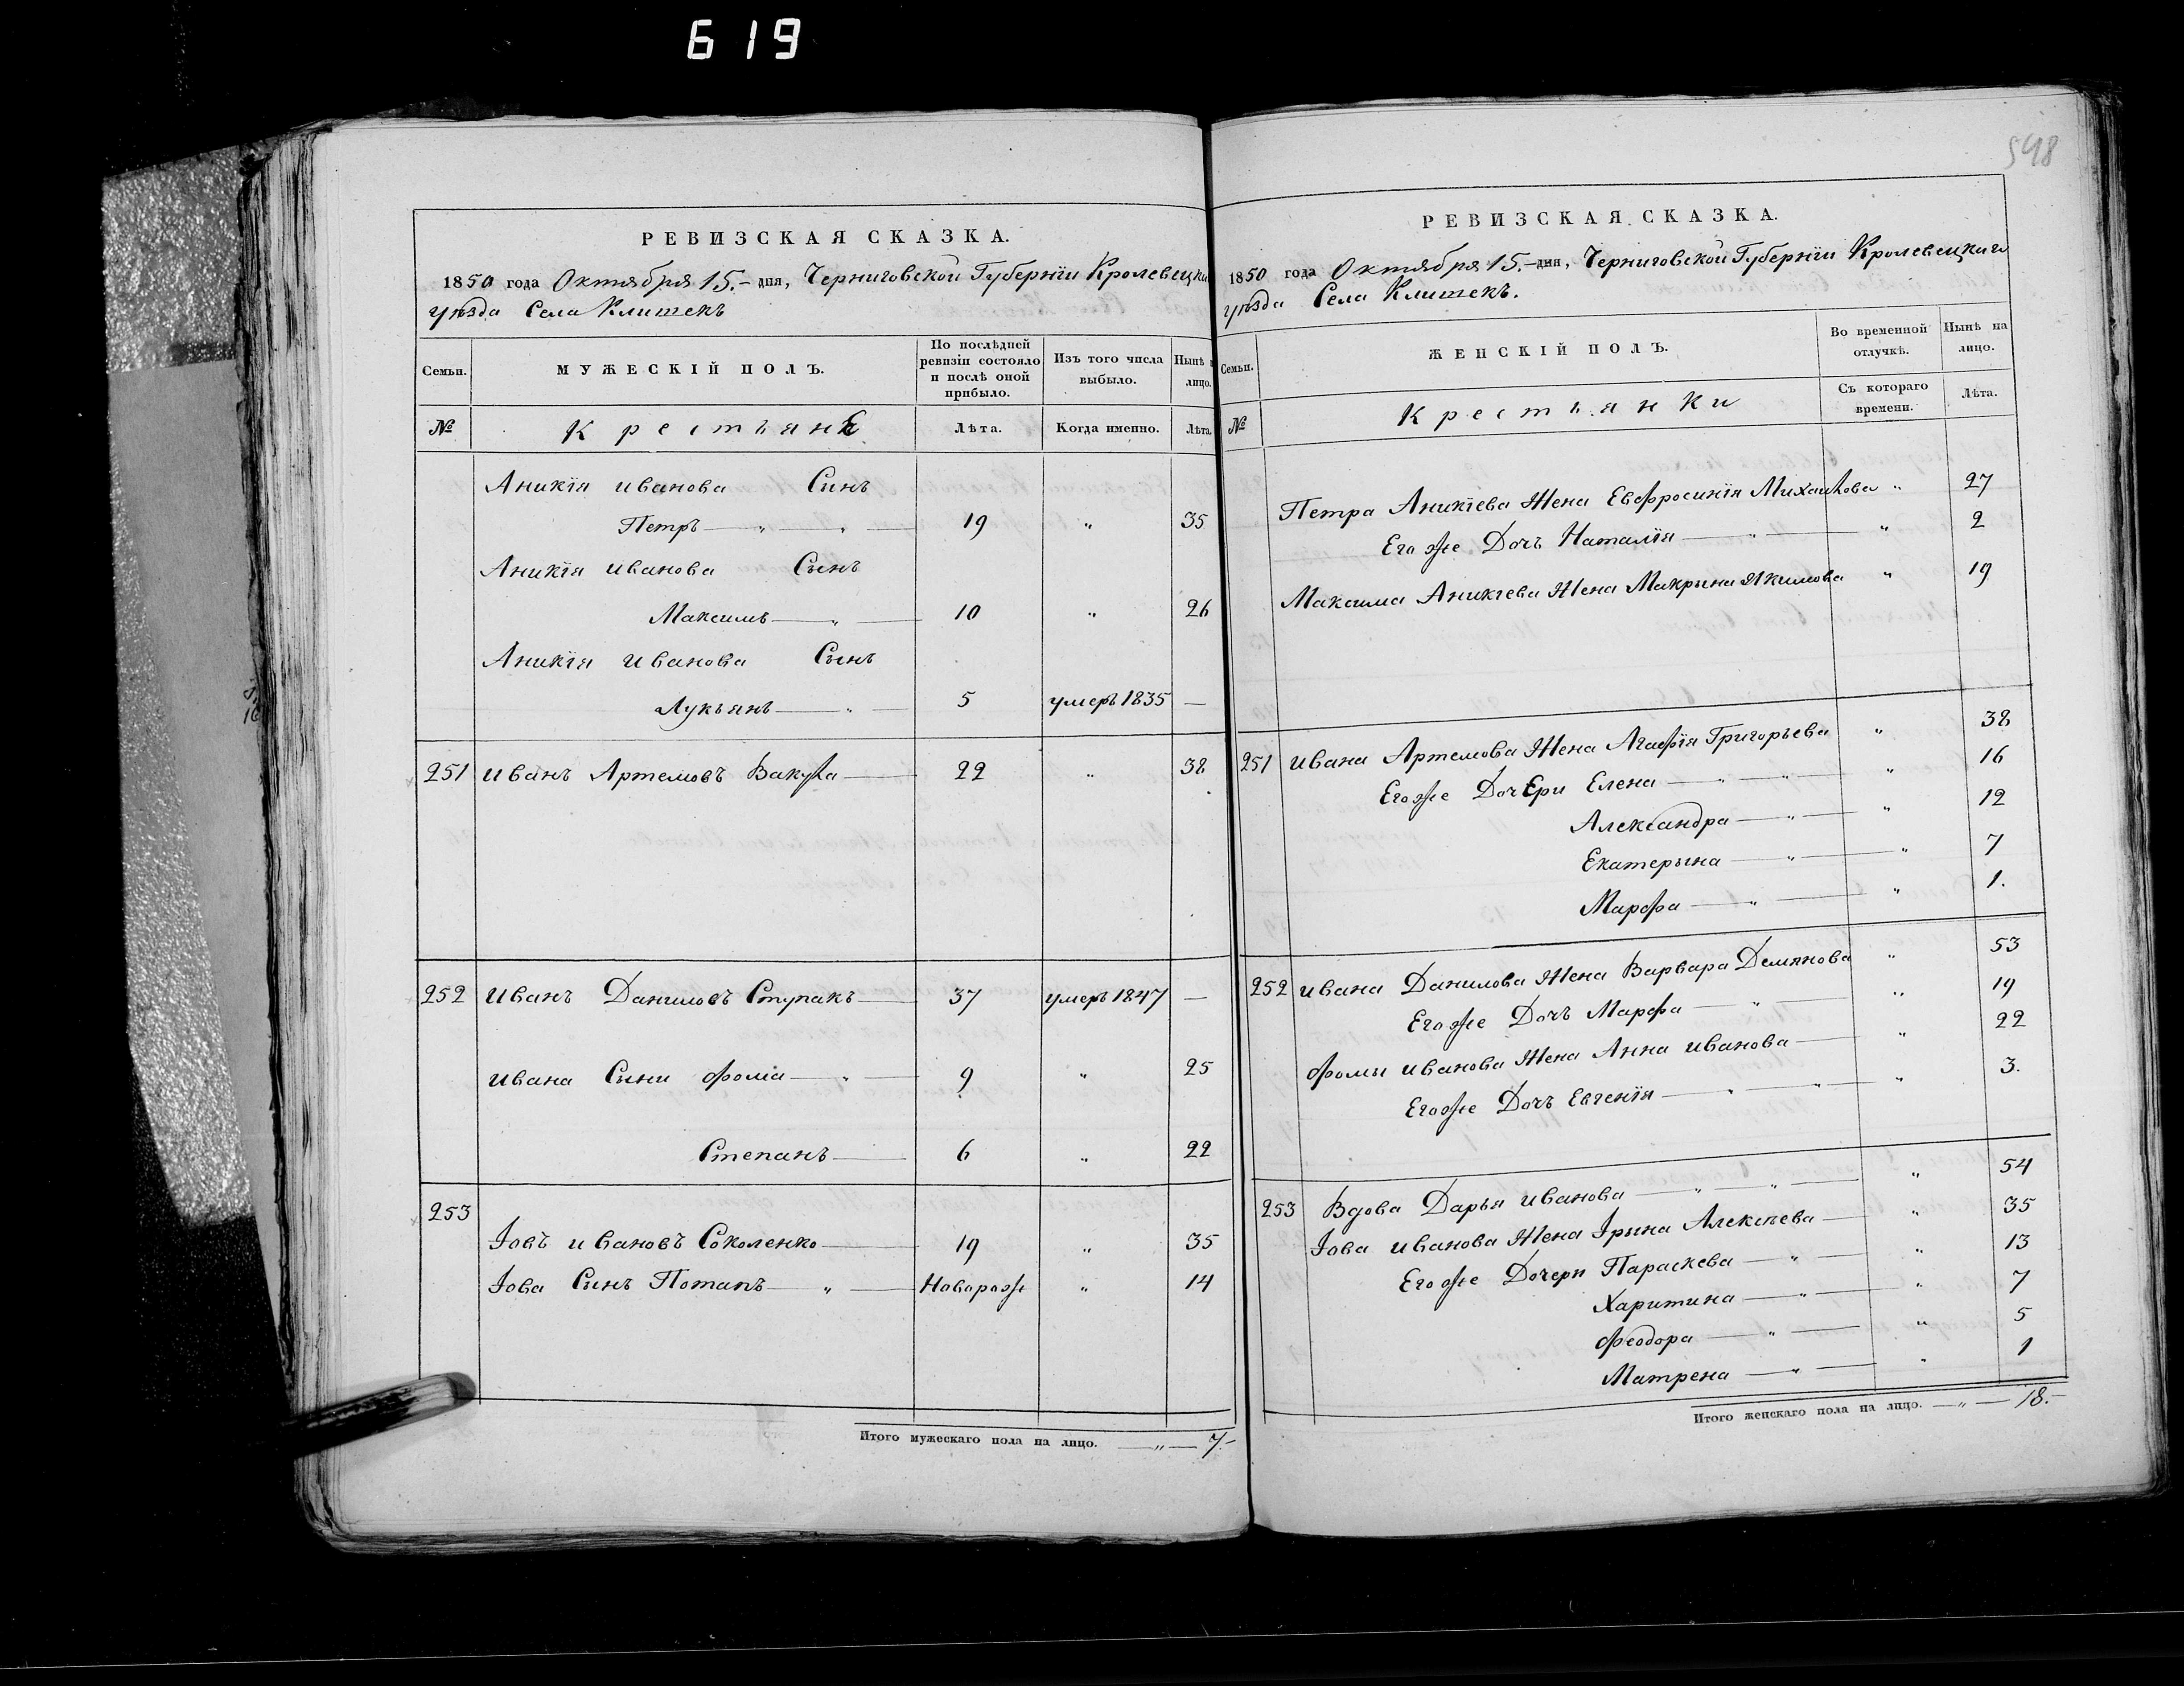 619
548
РЕВИЗСКАЯ СКАЗКА.
1850 года Октября 15.- дня, Черниговской Губернїи Кролевецка
уѣзда Села Клишекъ
Семьи.
МУЖЕСКІЙ ПОЛЪ.
По послѣдней ревизіи состояло и послѣ оной прибыло.
Изъ того числа выбыло.
Нынѣ
лицо.
№
Крестьяне
Лѣта.
Когда именно.
Лѣта.
Аникїя иванова Сынъ
Петръ — „ — „ — 19 „ 35
Аникїя иванова Сынъ
Максимъ — „ — 10 „ 26
Аникїя иванова Сынъ
Лукьянъ — „ — 5 умеръ 1835 —
251 иванъ Артемовъ Вакула — 22 „ 38
252 иванъ Даниловъ Ступакъ — 37 умеръ 1847 —
ивана Сыни Фоміа — „ — 9 „ 25
Степанъ — 6 „ 22
253
Іовъ ивановъ Соколенко — 19 „ 35
Іова Сынъ Потапъ — „ — Новорож „ 14
Итого мужескаго пола на лицо. — „ — 7.-
РЕВИЗСКАЯ СКАЗКА.
1850 года Октября 15.- дня, Черниговской Губернїи Кролевецкаго
уѣзда Села Клишекъ.
Семьи.
ЖЕНСКІЙ ПОЛЪ.
Во временной отлучкѣ.
Нынѣ на лицо.
Съ котораго времени.
Лѣта.
№
Крестьянки
Петра Аникїева Жена Евфросинїя Михайлова „ 27
Его же Дочъ Наталїя — „ — „ 2
Максима Аникіева Жена Макрына Якимова „ 19
251 ивана Артемова Жена Агафїя Григорьева „ 38
Его же ДочЕри Елена — „ — „ — „ 16
Александра — „ — „ 12
Екатерына — „ — „ 7
Марфа — „ — „ 1.
252 ивана Данилова Жена Варвара Демянова „ 53
Его же Дочъ Марфа — „ — „ 19
Фомы иванова Жена Анна иванова — „ 22
Его же Дочъ Евгенїя — „ — „ — „ 3.
253 Вдова Дарья иванова — „ — „ — „ 54
Іова иванова Жена Ірина Алексѣева — „ 35
Его же Дочери Параскева — „ — „ 13
Харитина — „ — „ 7
Феодора — „ — „ 5
Матрена — „ — „ 1
Итого женскаго пола на лицо. — „ — 18.-